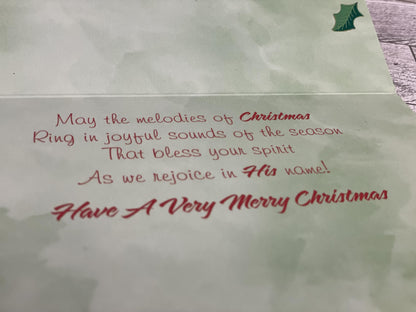 May the melodies of Christmas
Ring in joyful sounds of the season
That bless your spirit
As we rejoice in His name!
Have A Very Merry Christmas